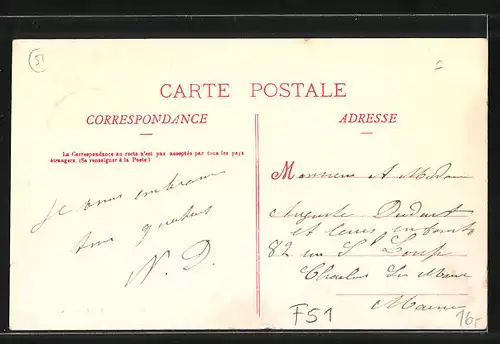 51
CARTE POSTALE
CORRESPONDANCE
ADRESSE
La Correspondance au recto n'est pas acceptée par tous les pays
étrangers. (Se renseigner à la Poste.)
Monsieur & Madame
Auguste
et leurs enfants
82 rue St Loup
Marne
Je vous embrasse
tous
N. D.
F51
16,-